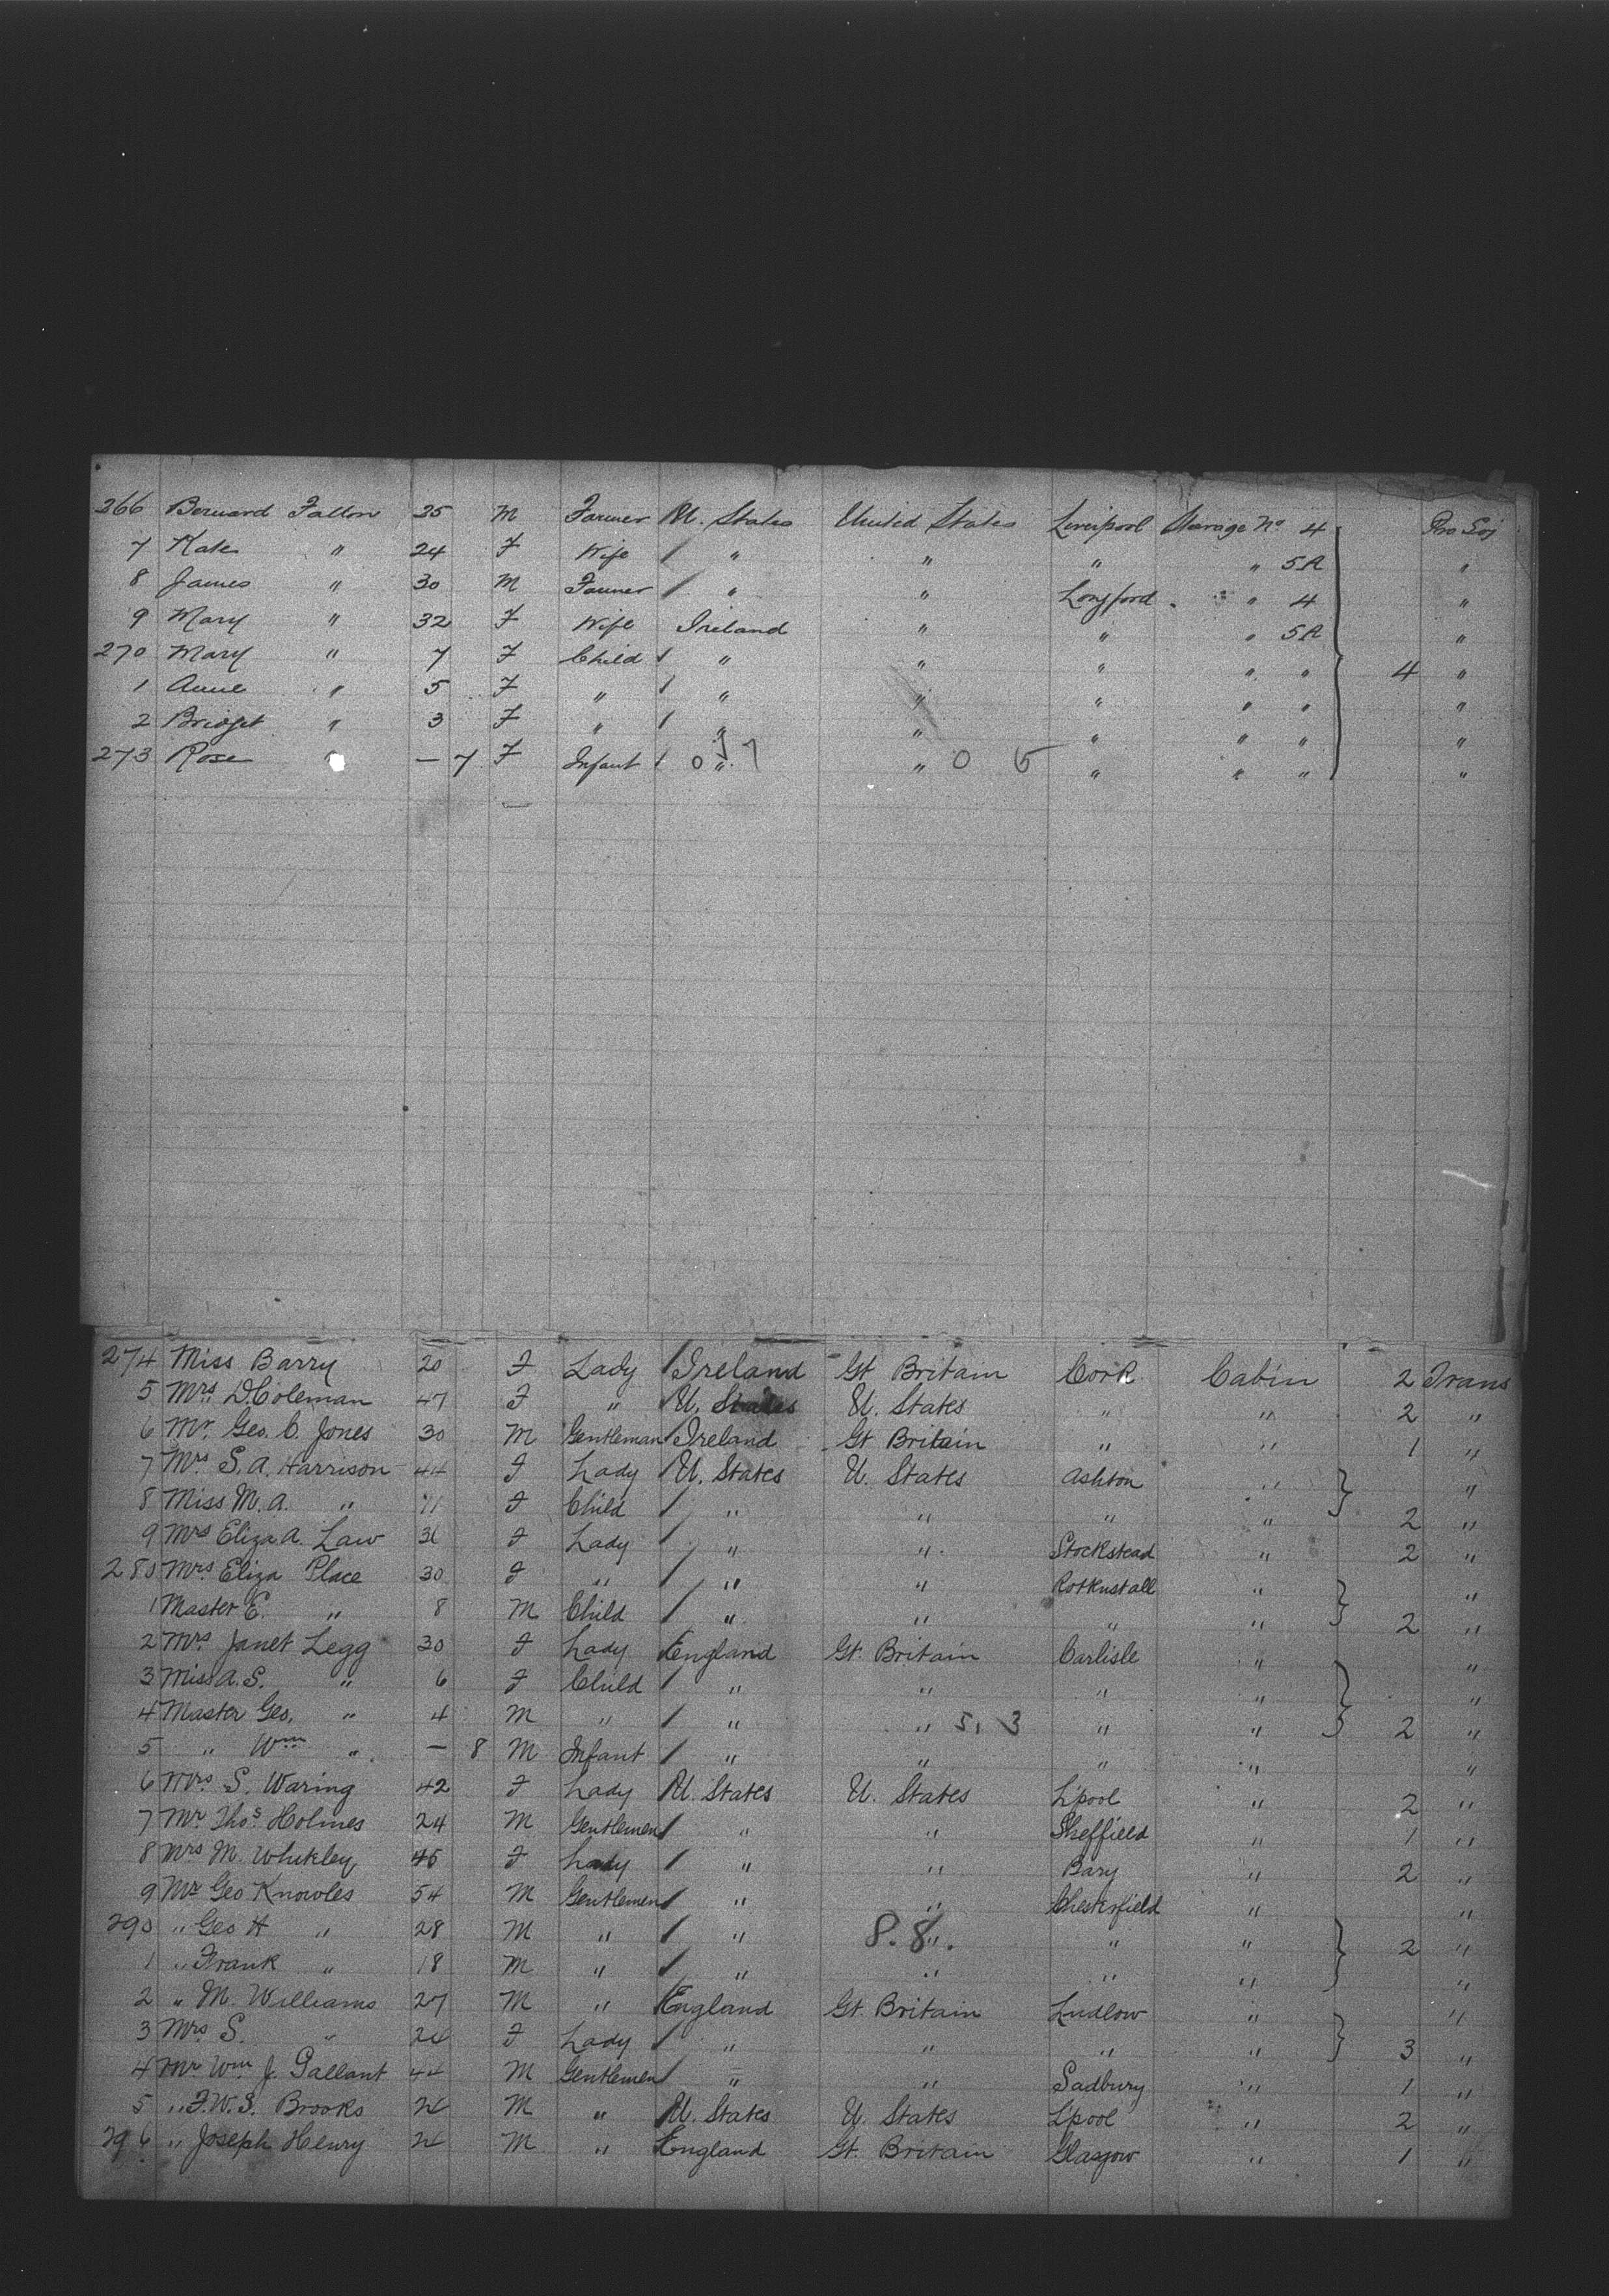 266 Bernard Fallon 25 M Farmer U. States United States Liverpool Steerage No 4 Pro Soj
7 Kate " 24 F Wife " " " " 5A "
8 James " 30 M Farmer " " Longford " 4 "
9 Mary " 32 F Wife Ireland " " " 5A "
270 Mary " 7 F Child " " " " " 4 "
1 Anne " 5 F " " " " " " "
2 Bridget " 3 F " " " " " " "
273 Rose " — 7 F Infant 0 " " 0 5 " " " "
274 Miss Barry 20 F Lady Ireland Gt Britain Cork Cabin 2 Trans
5 Mrs D. Coleman 47 F " U. States U. States " " 2 "
6 Mr. Geo. C. Jones 30 M Gentleman Ireland Gt Britain " " 1 "
7 Mrs S. A. Harrison 44 F Lady U. States U. States Ashton " "
8 Miss M. A. " 11 F Child " " " " 2 "
9 Mrs Eliza A. Law 31 F Lady " " Stockstead " 2 "
280 Mrs Eliza Place 30 F " " " " "
1 Master E. " 8 M Child " " " " 2 "
2 Mrs Janet Legg 30 F Lady England Gt. Britain Carlisle " "
3 Miss A. S. " 6 F Child " " " " "
4 Master Geo. " 4 M " " " 5, 3 " " 2 "
5 " Wm " — 8 M Infant " " " " "
6 Mrs S. Waring 42 F Lady U. States U. States L'pool " 2 "
7 Mr Thos Holmes 24 M Gentlemen " " Sheffield " 1 "
8 Mrs M. 45 F Lady " " Bary " 2 "
9 Mr Geo Knowles 54 M Gentlemen " " Chesterfield " "
290 " Geo H " 28 M " " 8.8. " " " 2 "
1 " Frank " 18 M " " " " " "
2 " M. Williams 27 M " England Gt. Britain Ludlow " "
3 Mrs S. " F Lady " " " " 3 "
4 Mr Wm J. Gallant 44 M Gentlemen " " Sadbury " 1 "
5 " F. W. S. Brooks M " U. States U. States L'pool " 2 "
296 " Joseph Henry M " England Gt. Britain Glasgow " 1 "